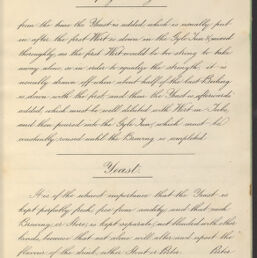 from the time the Yeast is added, which is usually put
in after the first Wort is down in the Gyle Tun, & mixed
thoroughly, as the first Wort would be too strong to take
away alone, so in order to equalize the strength, it is
usually drawn off when about half of the last Boiling
is down with the first, and then the Yeast is afterwards
added, which must be well diluted with Wort in Tubs,
and then poured into the Gyle Tun, which must be
constantly roused until the Brewing is completed.
Yeast.
It is of the utmost importance that the Yeast is
kept perfectly fresh, free from acidity, and that each
Brewing, or Store, is kept separate, not blended with other
kinds, because that not alone will alter and upset the
flavour of the drink, either Stout or Bitter. Bitter